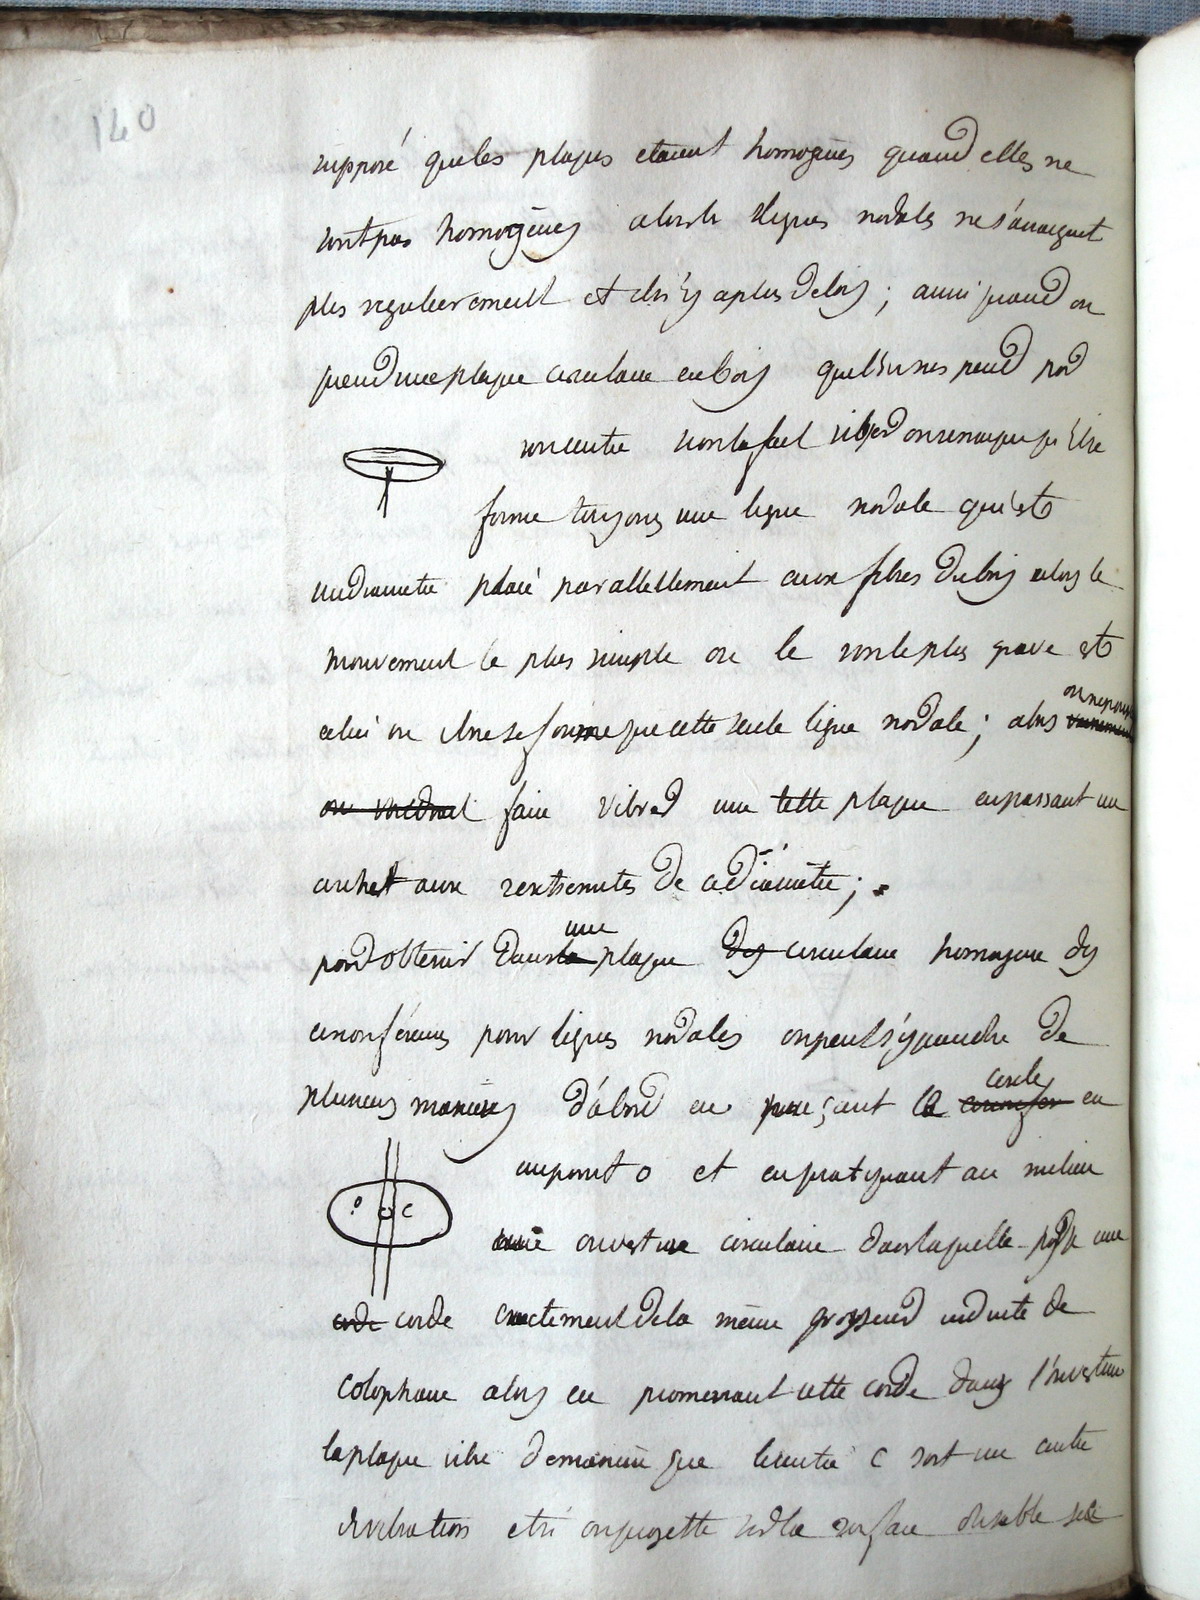 140
supposé que les plaques etaient homogènes quand elles ne
sont pas homogènes alors les lignes nodales ne s'arrangent
plus regulierement et il n'y a plus de lois ; aussi quand on
prend une plaque circulaire en bois que l'on suspend par
son centre si on la fait vibrer on remarque qu'il se
forme toujours une ligne nodale qui est
un diametre placé parallellement aux fibres du bois alors le
mouvement le plus simple ou le son le plus grave est
celui ou il ne se forme que cette seule ligne nodale ; alors
on voudrait faire vibrer une telle plaque en passant un
archet aux extremités de ce diamètre ;
une
pour obtenir dans la plaque des circulaire homogene des
circonférences pour lignes nodales on peut s'y prendre de
cercle
plusieurs manieres d'abord en perçant le en
au point o et en pratiquant au milieu
o c
une ouverture circulaire dans laquelle passe une
corde corde exactement de la même grosseur enduite de
colophane alors en promenant cette corde dans l'ouverture
la plaque vibre de maniere que le centre C soit un centre
de vibration et si on projette sur la surface du sable